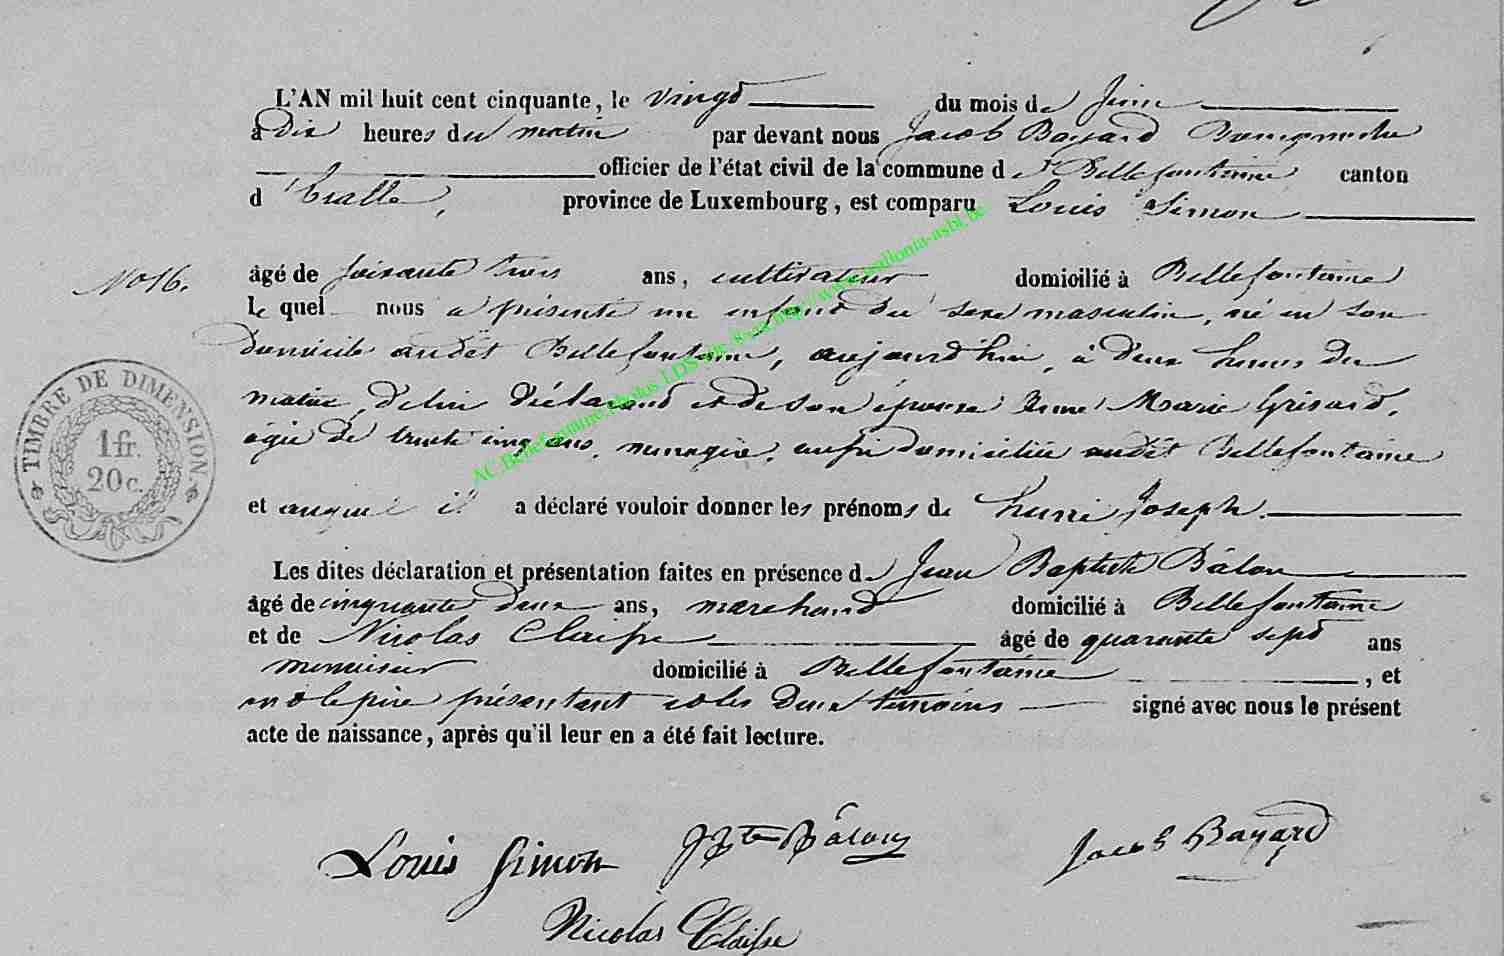 L'AN mil huit cent cinquante, le vingt du mois de Juin
à dix heures du matin par devant nous Jacob Bayard Bourgmestre
officier de l'état civil de la commune de Bellefontaine canton
d'Etalle, province de Luxembourg, est comparu Louis Simon
No 16. âgé de soixante trois ans, cultivateur domicilié à Bellefontaine
le quel nous a présenté un enfant du sexe masculin, né en son
domicile audit Bellefontaine, aujourd'hui, à deux heures du
matin, de lui déclarant et de son épouse Anne Marie Grisard,
agée de trente cinq ans, menagère, aussi domiciliée audit Bellefontaine
et auquel il a déclaré vouloir donner les prénoms de henri Joseph.
Les dites déclaration et présentation faites en présence de Jean Baptiste Bâlon
âgé de cinquante deux ans, marchand domicilié à Bellefontaine
et de Nicolas Claisse âgé de quarante sept ans
menuisier domicilié à Bellefontaine, et
ont le père présentant et les deux témoins signé avec nous le présent
acte de naissance, après qu'il leur en a été fait lecture.
TIMBRE DE DIMENSION.
1 fr.
20 c.
Louis Simon JBte Bâlon Jacob Bayard
Nicolas Claisse